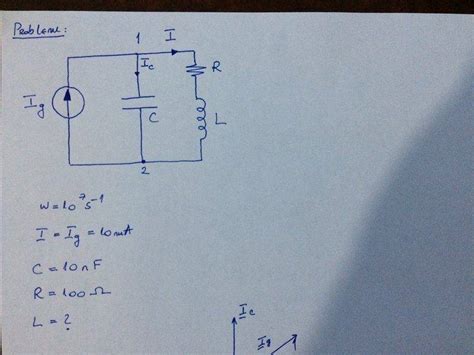 Problem:
1
I
Ic
R
Ig
C
L
2
W=10⁷s⁻¹
I = Ig = 10mA
C = 10nF
R = 100Ω
L = ?
Ic
Ig